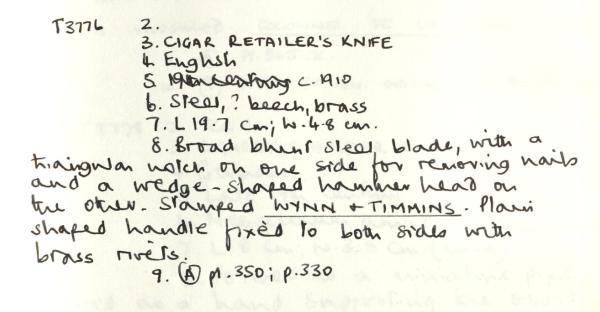 T3776 2.
3. CIGAR RETAILER'S KNIFE
4. English
5. c.1910
6. Steel, ? beech, brass
7. L 19.7 cm; W. 4.8 cm.
8. Broad blunt steel blade, with a
triangular notch on one side for removing nails
and a wedge-shaped hammer head on
the other. Stamped WYNN + TIMMINS. Plain
shaped handle fixed to both sides with
brass rivets.
9. (A) pl.350; p.330